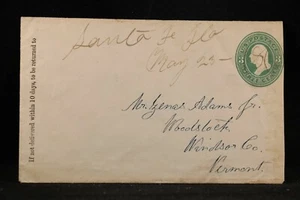 If not delivered within 10 days, to be returned to
Santa Fe Fla
May 23-
Mr. Gener Adams Jr.
Woodstock,
Windsor Co.
Vermont.